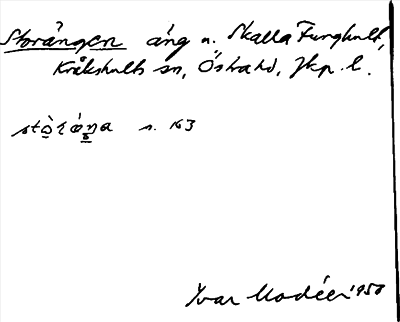 Storängen äng n. Skalla Funghult,
Kråkshults sn, Östra hd, Jkp. l.
s. 163
Ivar Modéer 1950